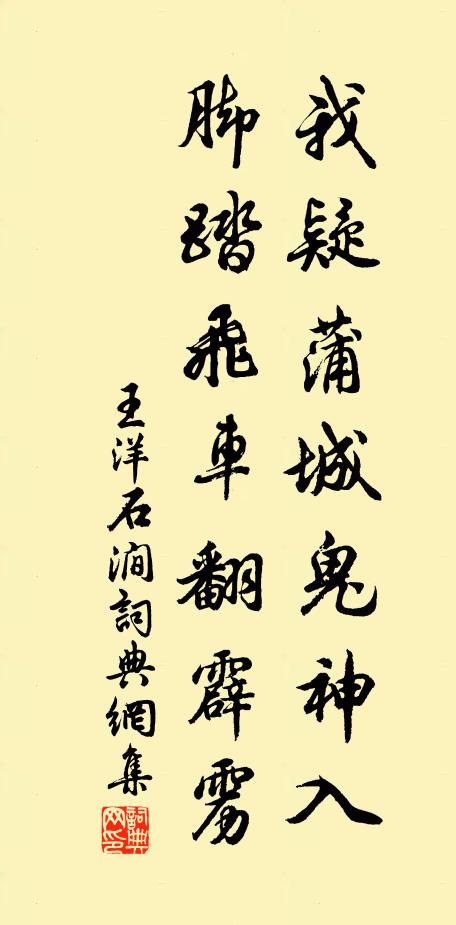 我疑蒲城鬼神入
脚踏飛車翻霹雳
王洋石澗詞典網集
詞典网印